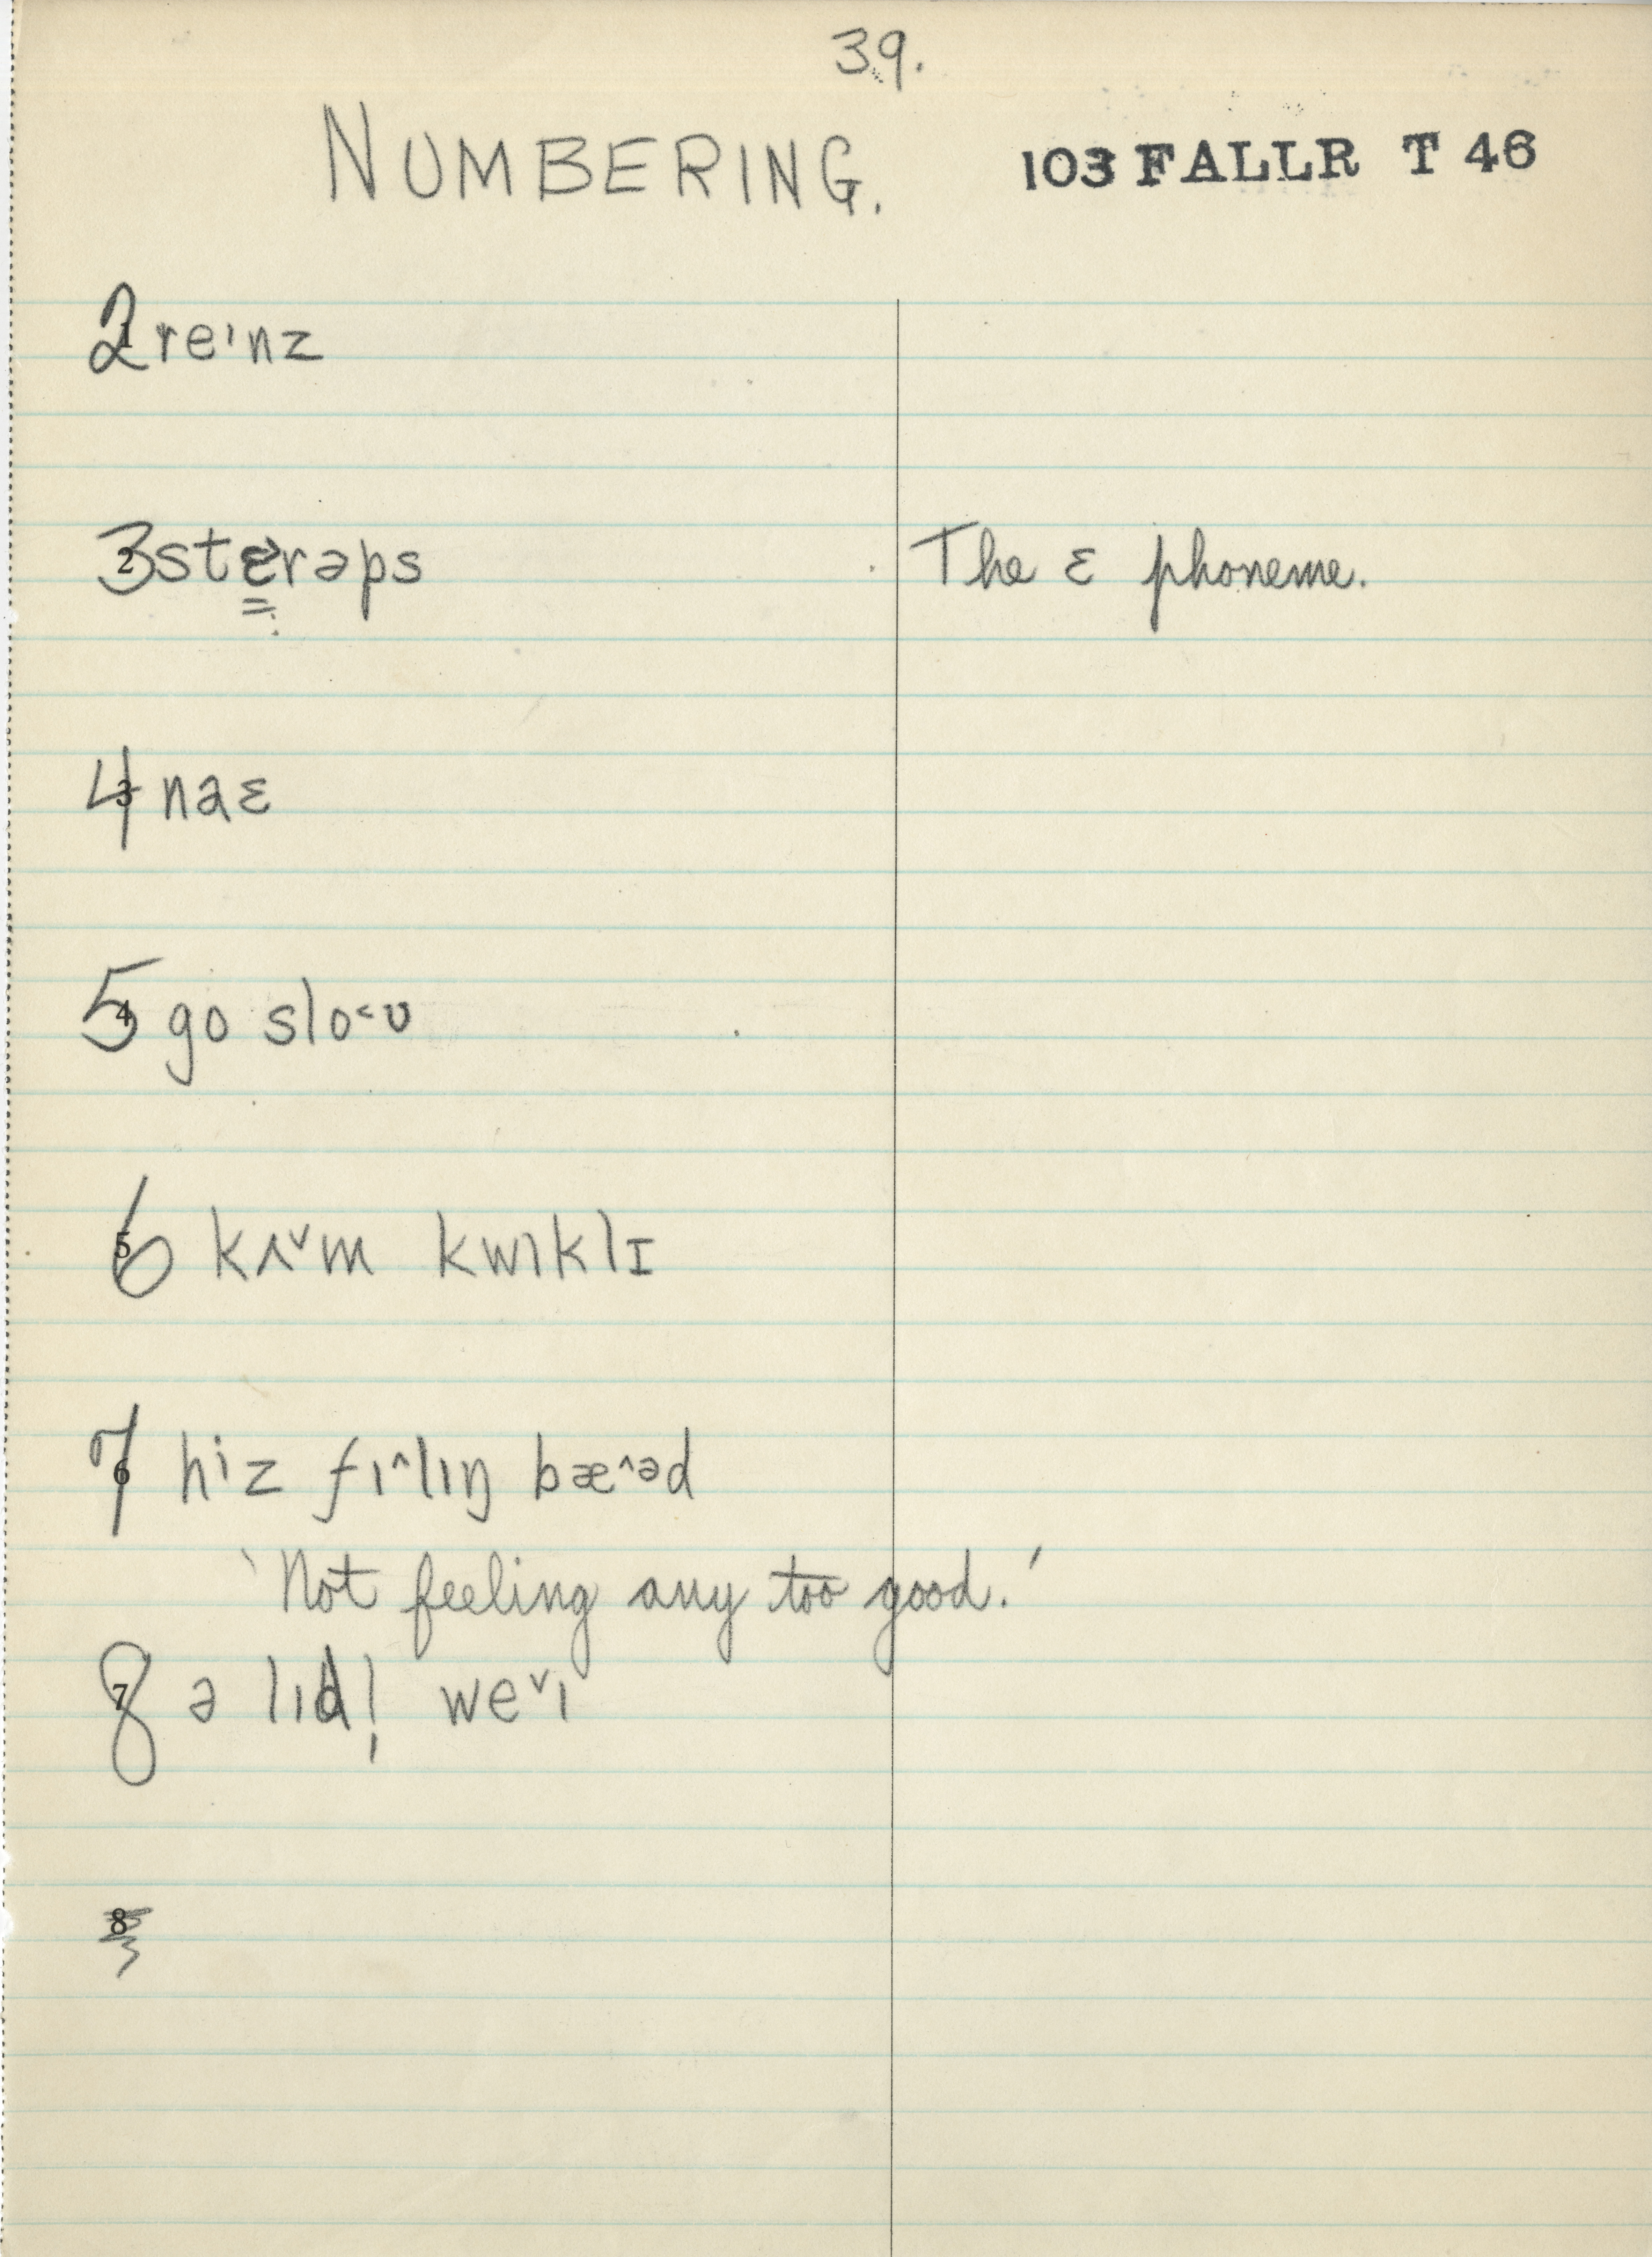 39.
NUMBERING. 103 FALLR T 46
1 2 reᶦnz
2 3 stɛ˃rəps The ɛ phoneme.
3 4 naɛ
4 5 go slo˂ᴜ
5 6 kʌ˅m kwɪklɪ
6 7 hⁱz fɪ˄lɪŋ bæ˄əd
'Not feeling any too good.'
7 8 ə lɪd! we˅ɪ
8